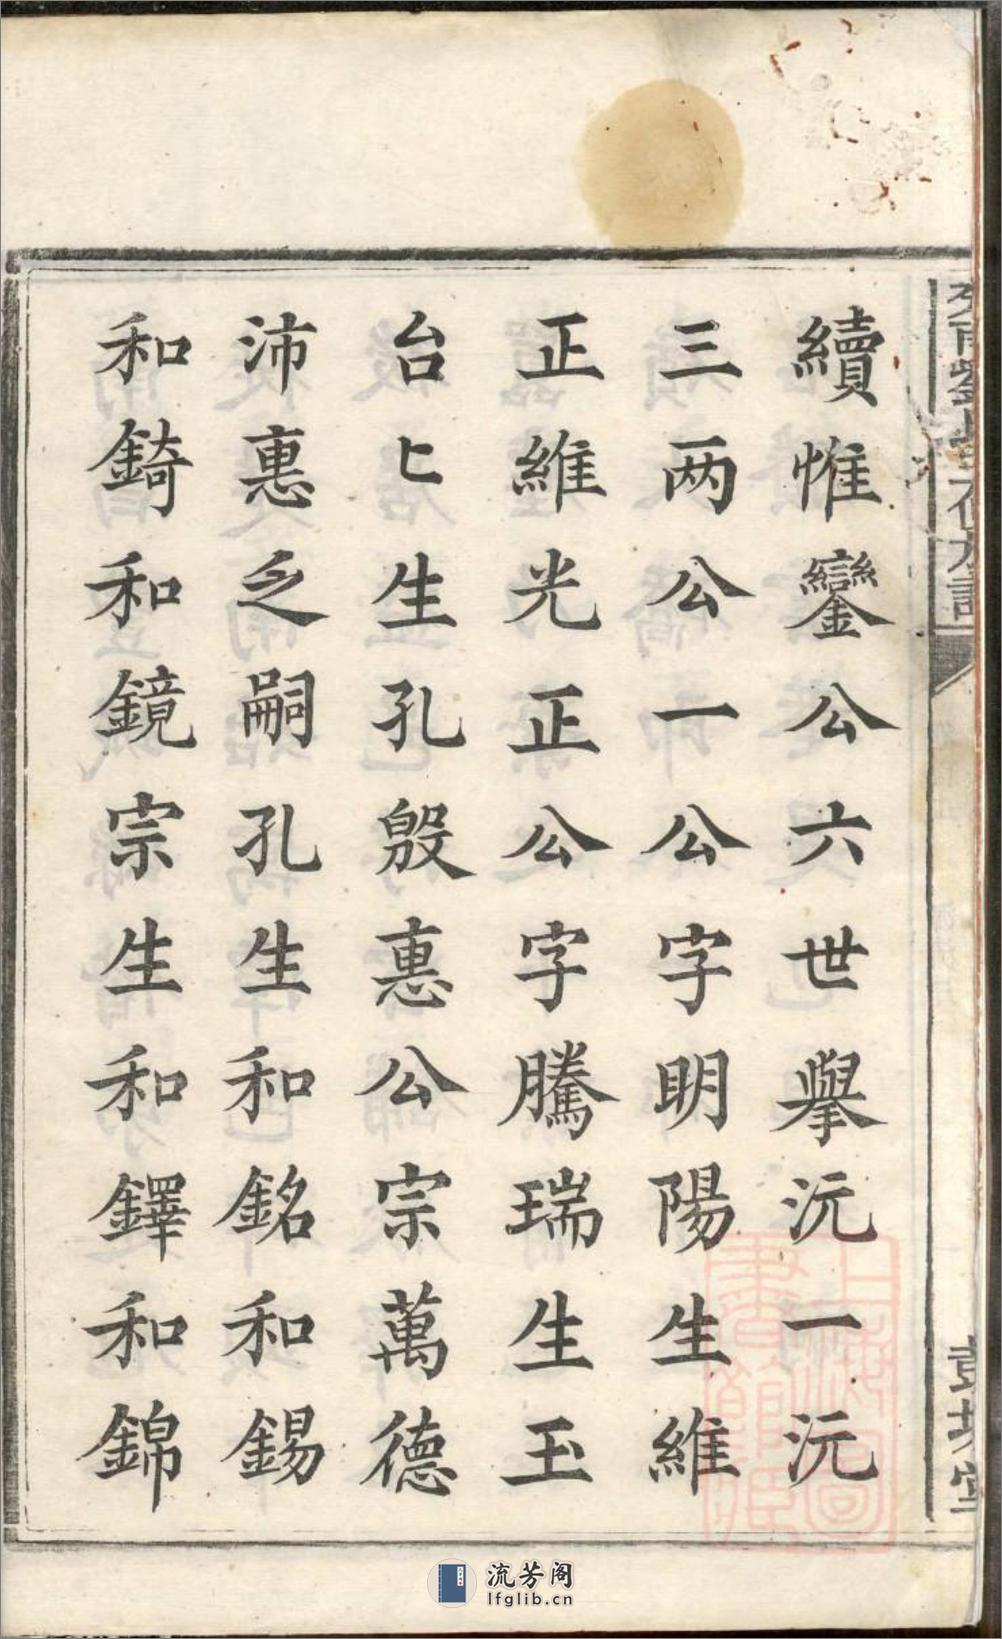 續惟鑾公六世舉沅一沅
三两公一公字明陽生維
正維光正公字騰瑞生玉
台匕生孔殷惠公宗萬德
沛惠之嗣孔生和銘和錫
和錡和鏡宗生和鐸和錦
上海圖書館藏
流芳阁
lfglib.cn